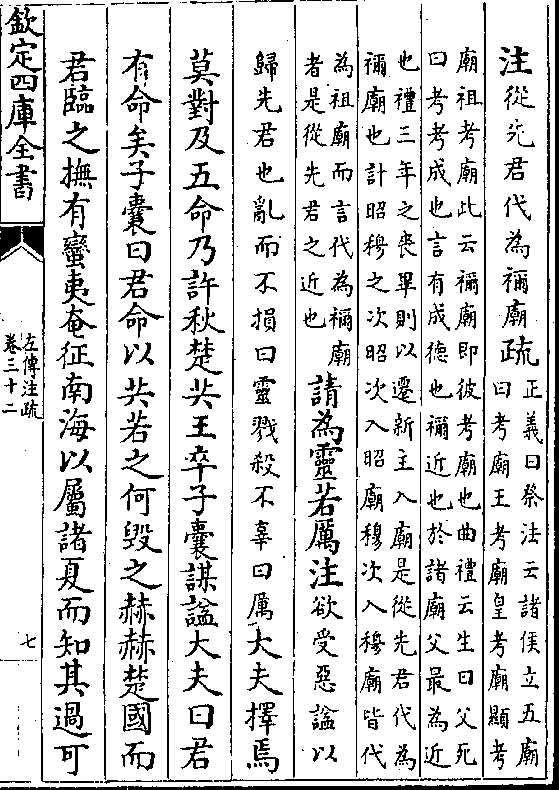 注從先君代為禰廟疏
正義曰祭法云諸侯立五廟
曰考廟王考廟皇考廟顯考
廟祖考廟此云禰廟即彼考廟也曲禮云生曰父死
曰考考成也言有成德也禰近也於諸廟父最為近
也禮三年之喪畢則以遷新主入廟是從先君代為
禰廟也計昭穆之次昭次入昭廟穆次入穆廟皆代
為祖廟而言代為禰廟
者是從先君之近也
請為靈若厲注欲受惡諡以
歸先君也亂而不損曰靈戮殺不辜曰厲大夫擇焉
莫對及五命乃許秋楚共王卒子囊謀諡大夫曰君
有命矣子囊曰君命以共若之何毀之赫赫楚國而
君臨之撫有蠻夷奄征南海以屬諸夏而知其過可
欽定四庫全書
左傳注疏
卷三十二
七